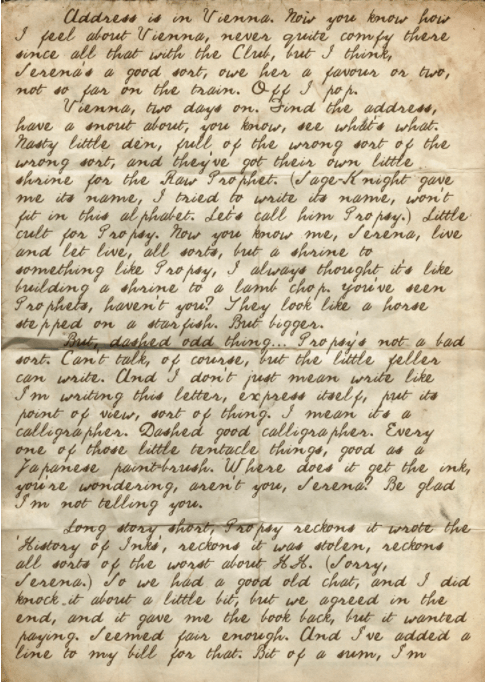 Address is in Vienna. Now you know how
I feel about Vienna, never quite comfy there
since all that with the Club, but I think,
Serena's a good sort, owe her a favour or two,
not so far on the train. Off I pop.
Vienna, two days on. Find the address,
have a snout about, you know, see what's what.
Nasty little den, full of the wrong sort of the
wrong sort, and they've got their own little
shrine for the Raw Prophet. (Sage-Knight gave
me its name, I tried to write its name, won't
fit in this alphabet. Let's call him Propsy.) Little
cult for Propsy. Now you know me, Serena, live
and let live, all sorts, but a shrine to
something like Propsy, I always thought it's like
building a shrine to a lamb chop. You've seen
Prophets, haven't you? They look like a horse
stepped on a starfish. But bigger.
But, dashed odd thing... Propsy's not a bad
sort. Can't talk, of course, but the little feller
can write. And I don't just mean write like
I'm writing this letter, express itself, put its
point of view, sort of thing. I mean it's a
calligrapher. Dashed good calligrapher. Every
one of those little tentacle things, good as a
Japanese paint-brush. Where does it get the ink,
you're wondering, aren't you, Serena? Be glad
I'm not telling you.
Long story short, Propsy reckons it wrote the
'History of Inks', reckons it was stolen, reckons
all sorts of the worst about H.H. (Sorry,
Serena.) So we had a good old chat, and I did
knock it about a little bit, but we agreed in the
end, and it gave me the book back, but it wanted
paying. Seemed fair enough. And I've added a
line to my bill for that. Bit of a sum, I'm